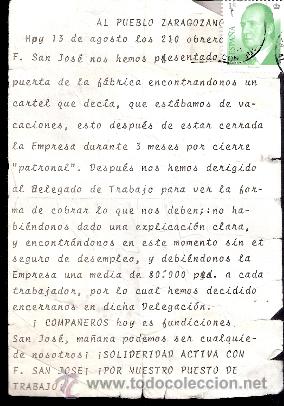 AL PUEBLO ZARAGOZANO
Hoy 13 de agosto los 210 obreros
F. San José nos hemos presentado
puerta de la fábrica encontrandonos un
cartel que decía, que estábamos de va-
caciones, esto después de estar cerrada
la Empresa durante 3 meses por cierre
"patronal". Después nos hemos derigido
al Delegado de Trabajo para ver la for-
ma de cobrar lo que nos deben;:no ha-
biéndonos dado una explicación clara,
y encontrándonos en este momento sin et
seguro de desempleo, y debiéndonos la
Empresa una media de 80.000 ptd. a cada
trabajador, por lo cual hemos decidido
encerranos en dicha Delegación.
¡ COMPAÑEROS hoy es fundiciones
San José, mañana podemos ser cualquie-
de nosotros¡ ¡SOLIDERIDAD ACTIVA CON
F. SAN JOSE¡ ¡POR NUESTRO PUESTO DE
TRABAJO
ESPAÑA
todocoleccion.net